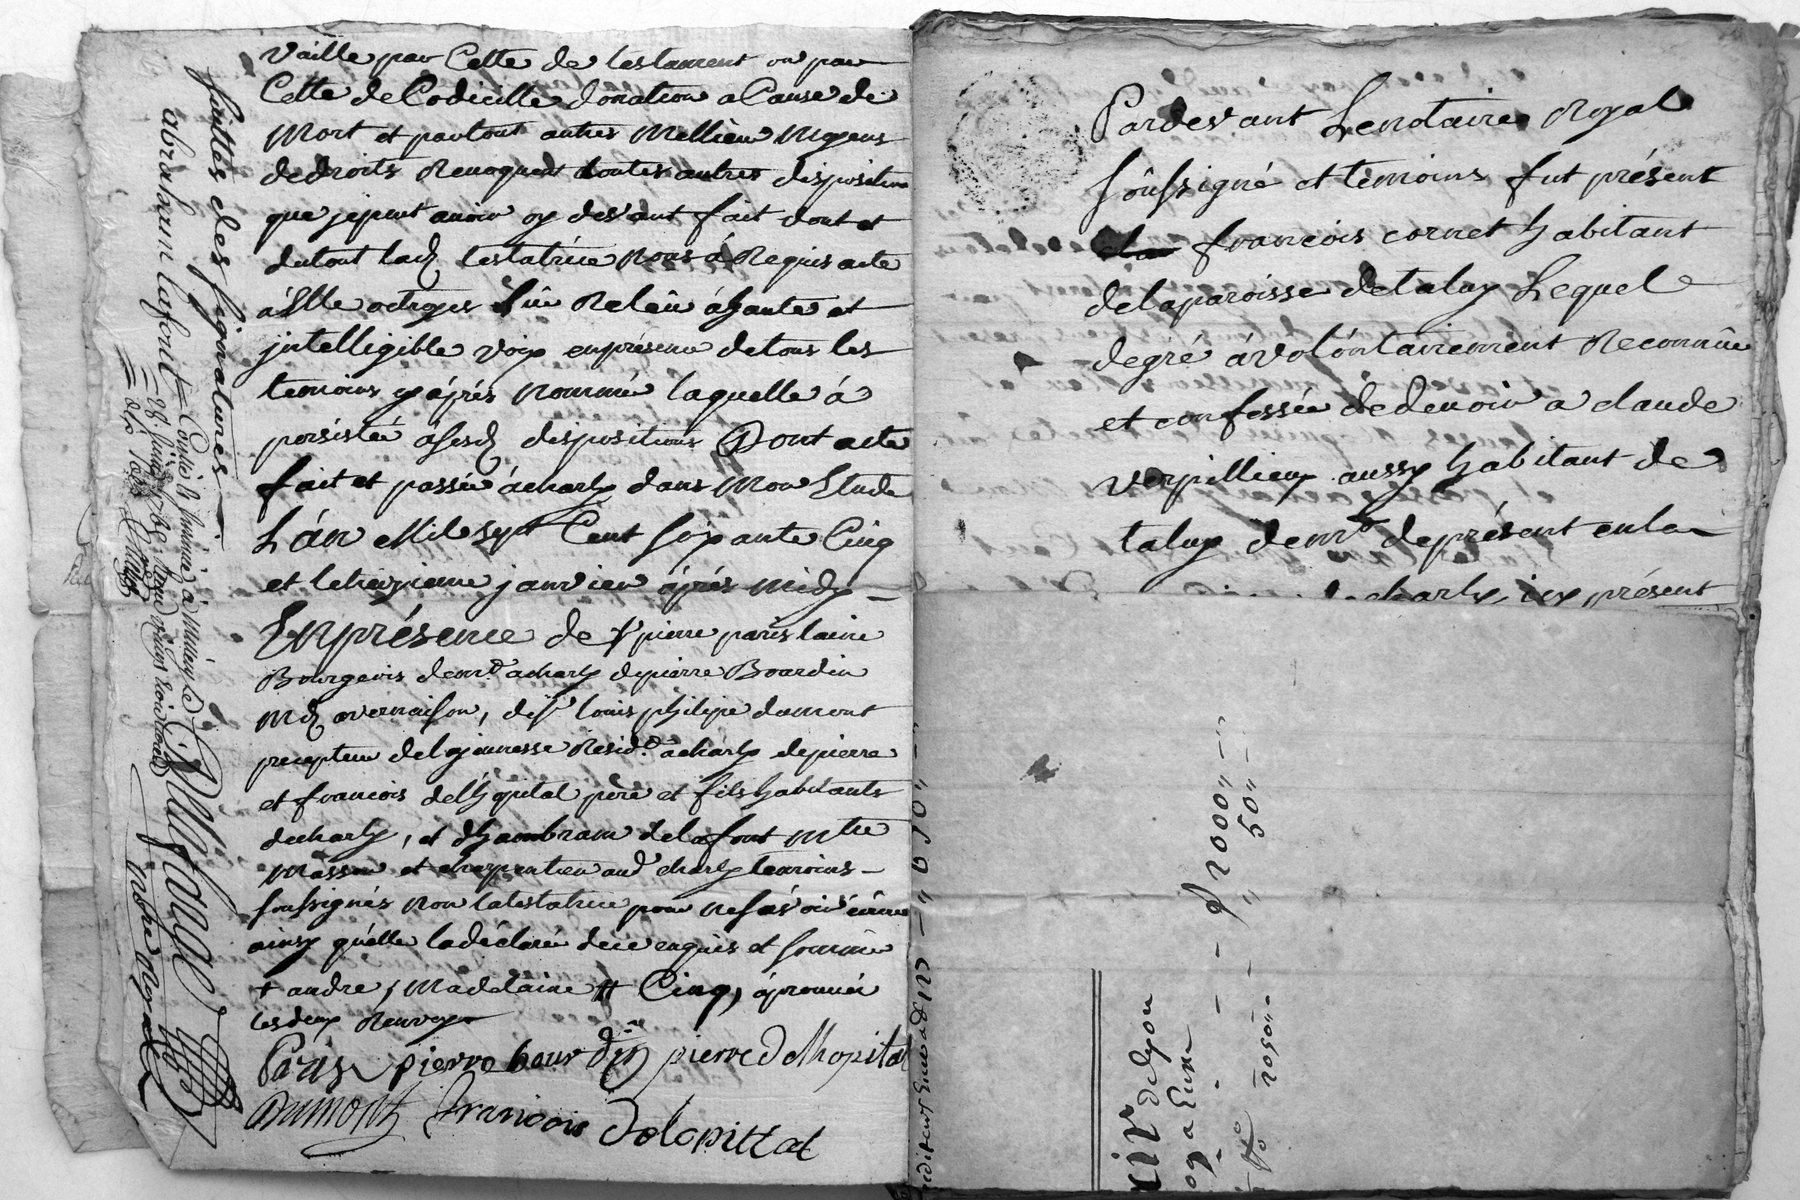 vaille par Cette de testament ou par
Cette de Codicille donation a Cause de
Mort et partout autres Mellieur Moyens
de droits Revoquent toutes autres disposition
que je peut avoir cy devant fait dont et
du tout lad. testatrice nous á Requis acte
á Elle octroyer Lû Relêu á haute et
jntelligible voix en présence de tous les
temoins cy áprés nommé laquelle á
persistée á sesd. dispositions Dont acte
fait et passée á charly dans Mon Etude
L'án Mil sept Cent soixante Cinq
et le treizieme janvier áprés midy
En présence de Sr pierre paris laine
Bourgeois demt. a charly de pierre Bourdin
Md. a vernaison, de Sr louis philipe dumont
precepteur de la jeunesse Resid.t a charly de pierre
et francois delhopital pere et fils habitants
de charly, et d'hambram de lafont Mtre
Masson et charpentier aud. charly temoins
soussignés non la testatrice pour ne sávoir écrire
ainsy qu'elle la déclaré de ce enquis et sommée
+ andre, Madelaine # Cinq, áprouvée
les deux Renvoys
Páris pierre bour din pierre delhopital
Dumont francois delopittal
suittes des signatures
abraham lafont
notre Royal
Pardevant Le notaire Royal
soussigné et temoins fut présent
francois cornet habitant
de la paroisse de taluy Lequel
de gré á volontairement Reconnûe
et confessée de devoir a claude
verpillieux aussy habitant de
taluy demt. de présent en la
de charly, icy présent
2000 "
50 "
2050 "
de lyon